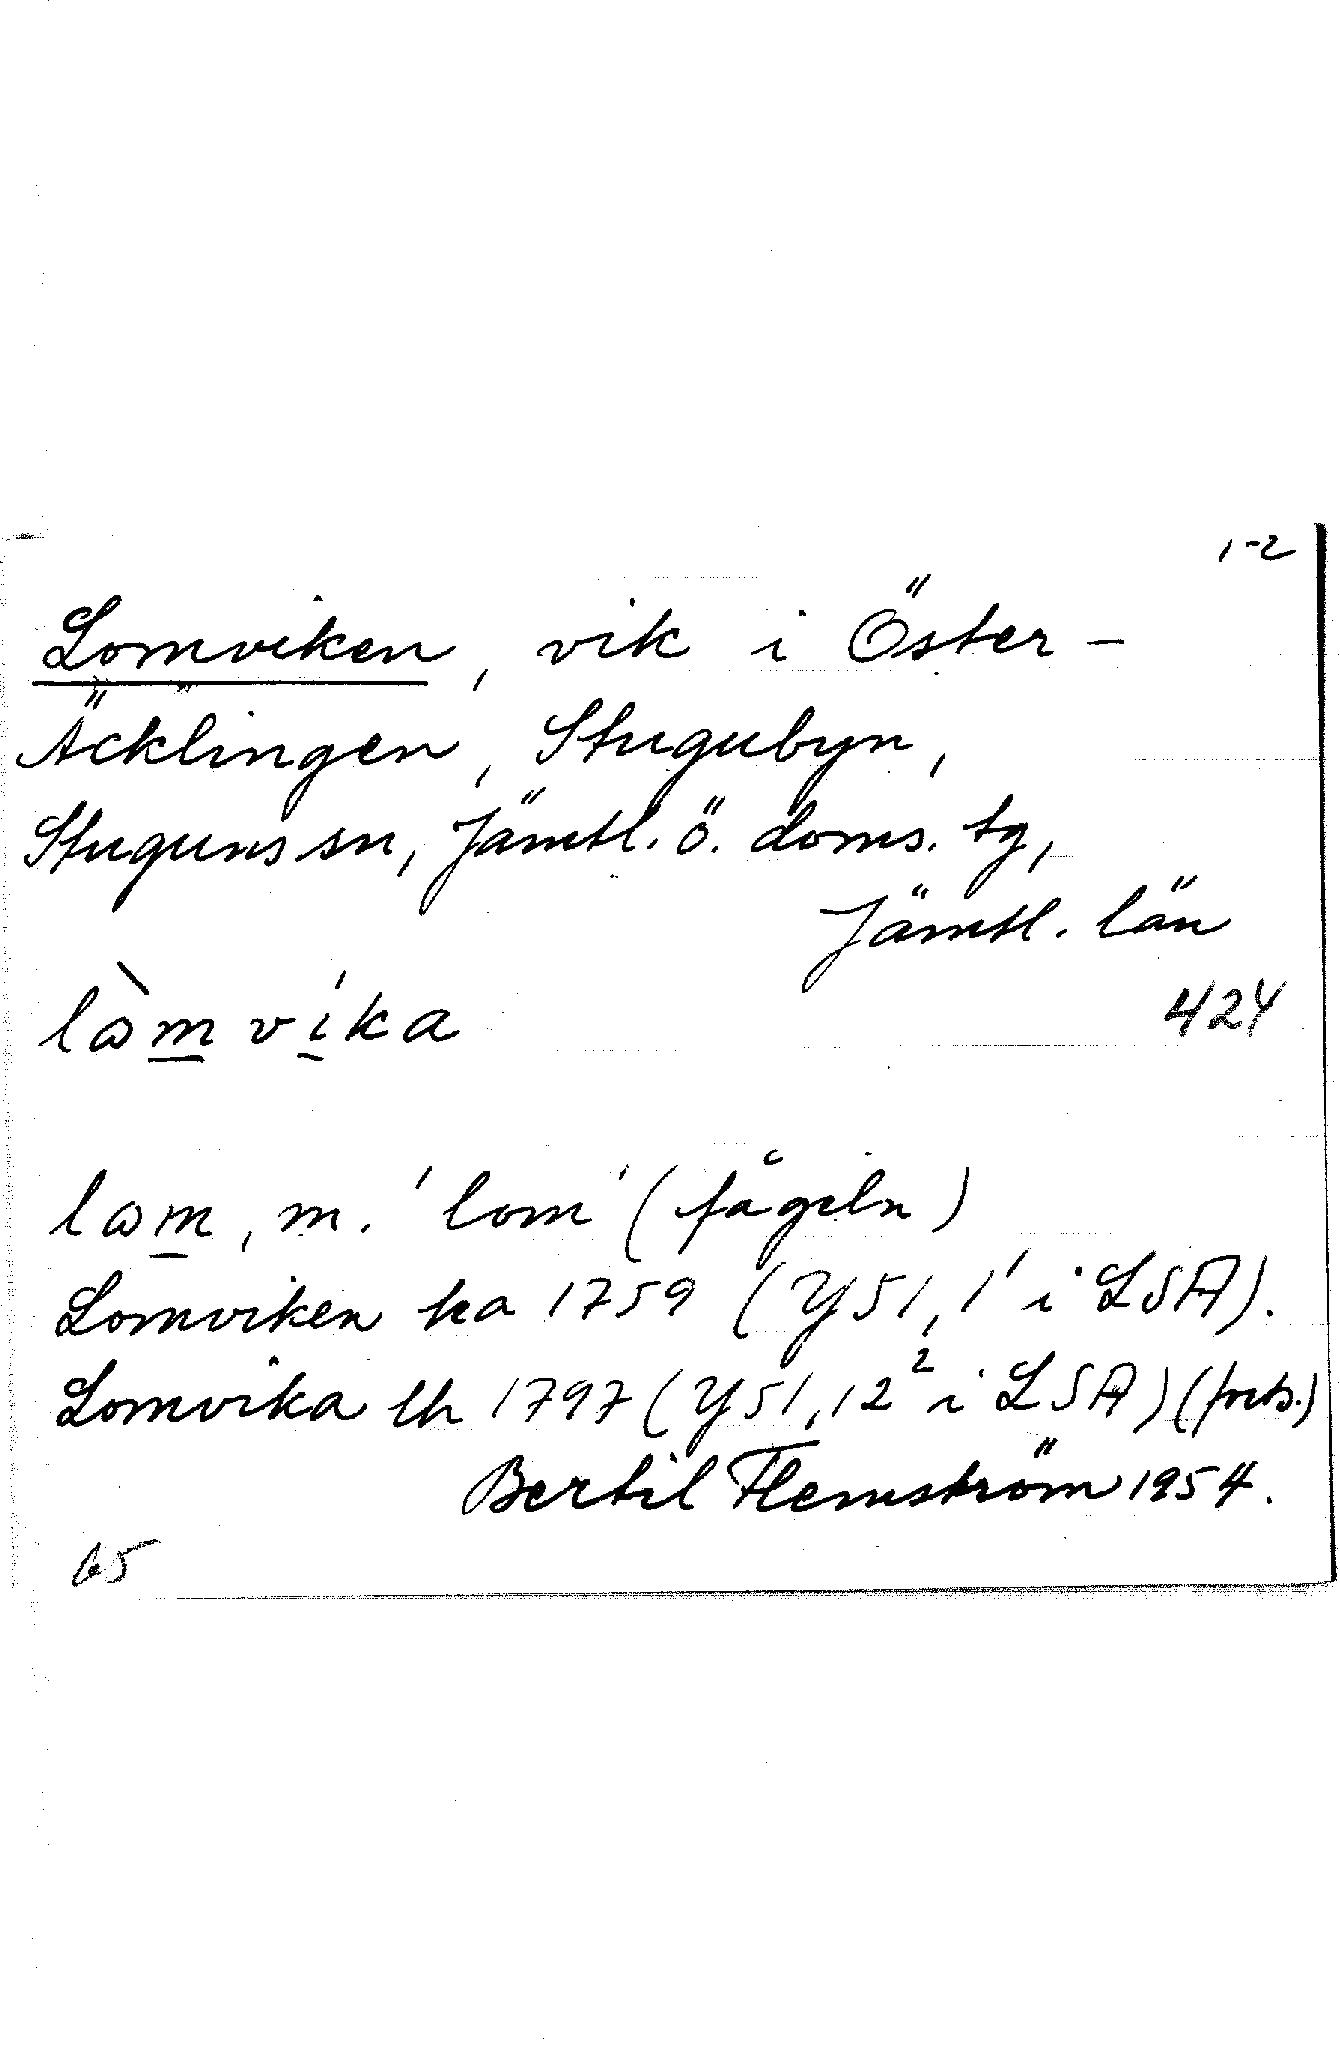 1-2
Lomviken, vik i Öster-
Äcklingen, Stugubyn,
Stuguns sn, Jämtl. ö. doms. tg,
Jämtl. län
lòmvíka
424
lom, m. 'lom' (fågeln)
Lomviken ka 1759 (Y51, 1' i LSA).
Lomvika lh 1797 (Y51, 12² i LSA) (forts.)
Bertil Flemström 1954.
65